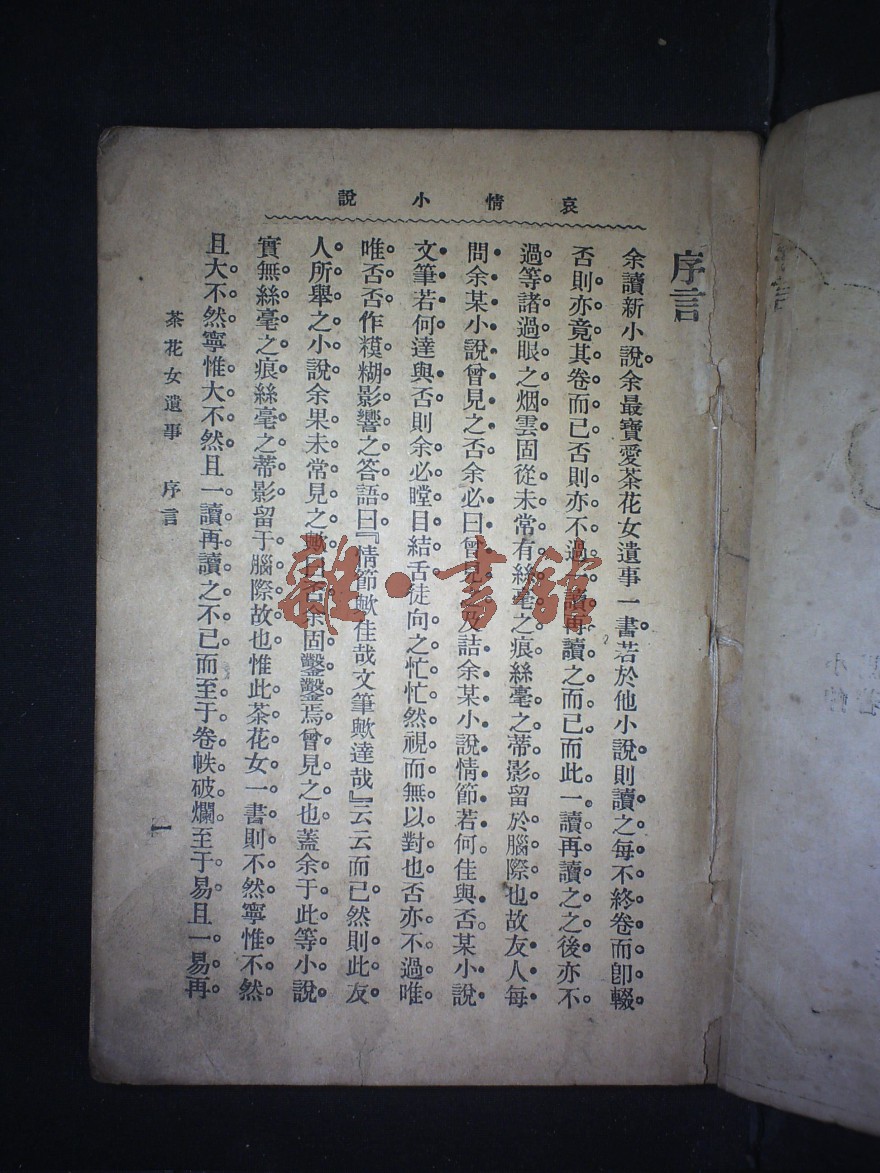 哀情小說
序言
余讀新小說余最寶愛茶花女遺事一書若於他小說則讀之每不終卷而卽輟
否則亦竟其卷而已否則亦不過一讀再讀之而已而此一讀再讀之之後亦不
過等諸過眼之烟雲固從未常有絲毫之痕絲毫之蒂影留於腦際也故友人每
問余某小說曾見之否余必曰曾見之及詰余某小說情節若何佳與否某小說
文筆若何達與否則余必瞠目結舌徒向之忙忙然視而無以對也否亦不過唯
唯否否作糢糊影響之答語曰『情節歟佳哉文筆歟達哉』云云而已然則此友
人所舉之小說余果未常見之歟曰否余固鑿鑿焉曾見之也蓋余于此等小說
實無絲毫之痕絲毫之蒂影留于腦際故也惟此茶花女一書則不然寧惟不然
且大不然寧惟大不然且一讀再讀之不已而至于卷帙破爛至于易且一易再
茶花女遺事 序言
一
雜·書館